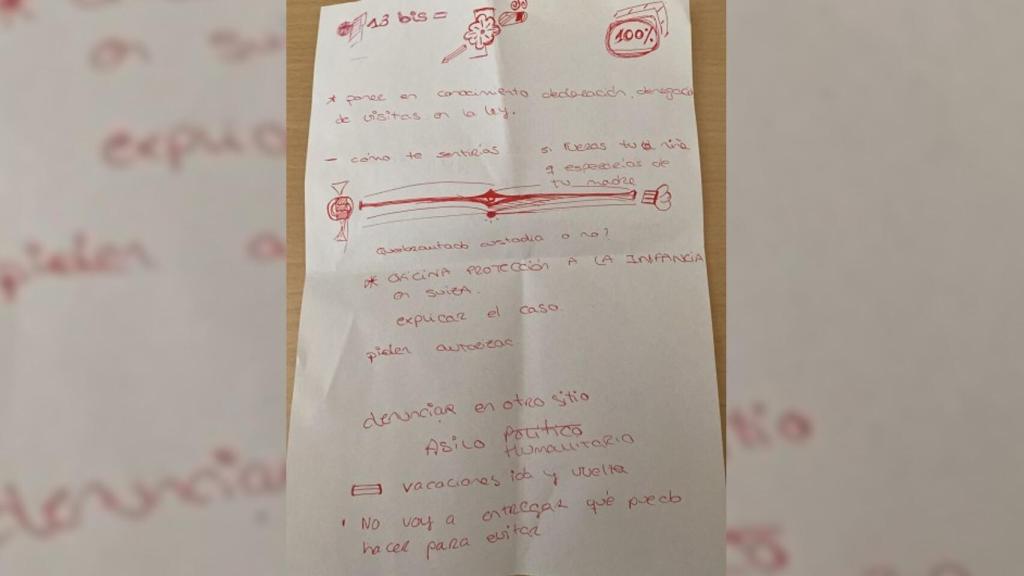 13 bis =
100%
* poner en conocimiento declaración, denegación
de visitas en la ley.
- cómo te sentirías si fueras tu niña
q esperarías de
tu madre
Quebrantado custodia o no?
* OFICINA PROTECCIÓN A LA INFANCIA
en SUIZA.
explicar el caso.
piden autorizac
denunciar en otro sitio
ASILO POLÍTICO
HUMANITARIO
vacaciones ida y vuelta
NO voy a entregar qué puedo
hacer para evitar